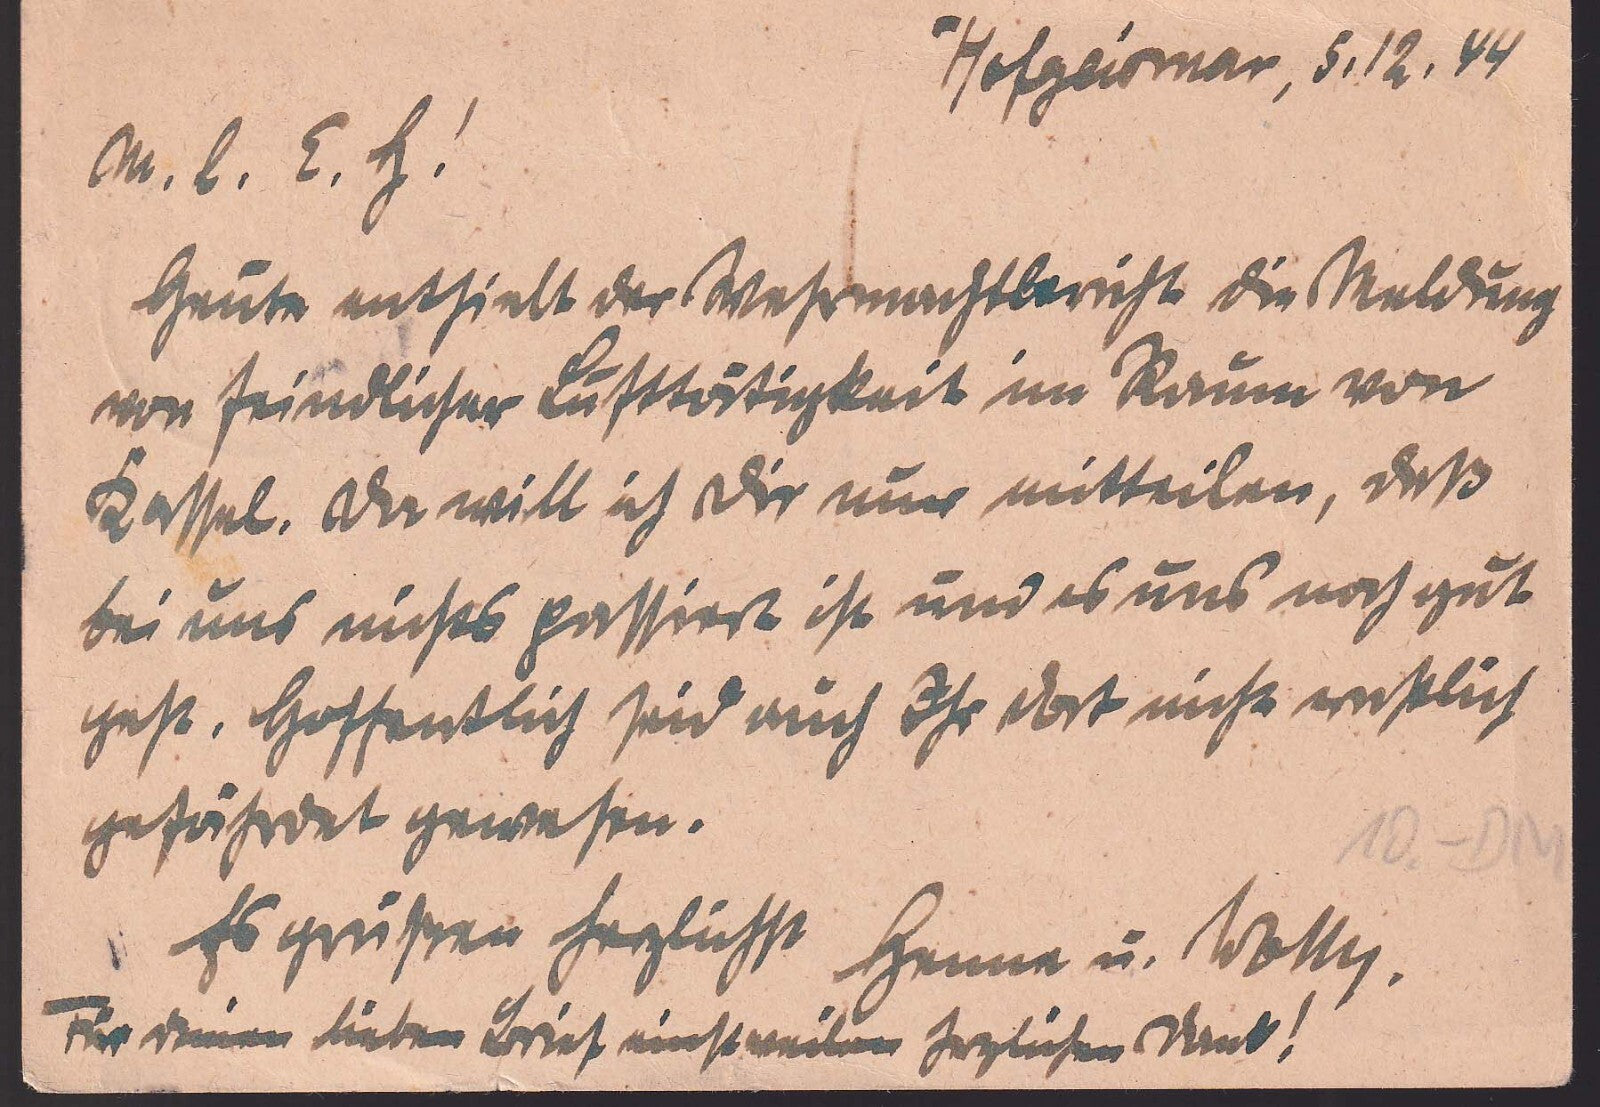 Hofgeismar, 5.12.44
M. l. E. H!
Heute enthielt der Wehrmachtbericht die Meldung
von feindlicher Lufttätigkeit im Raum von
Kassel. Da will ich Dir nur mitteilen, daß
bei uns nichts passiert ist und es uns noch gut
geht. Hoffentlich seid auch Ihr dort nicht ernstlich
gefährdet gewesen.
10.-DM
Es grüßen herzlichst Henne u. Wolly.
Für deinen lieben Brief einstweilen herzlichen Dank!